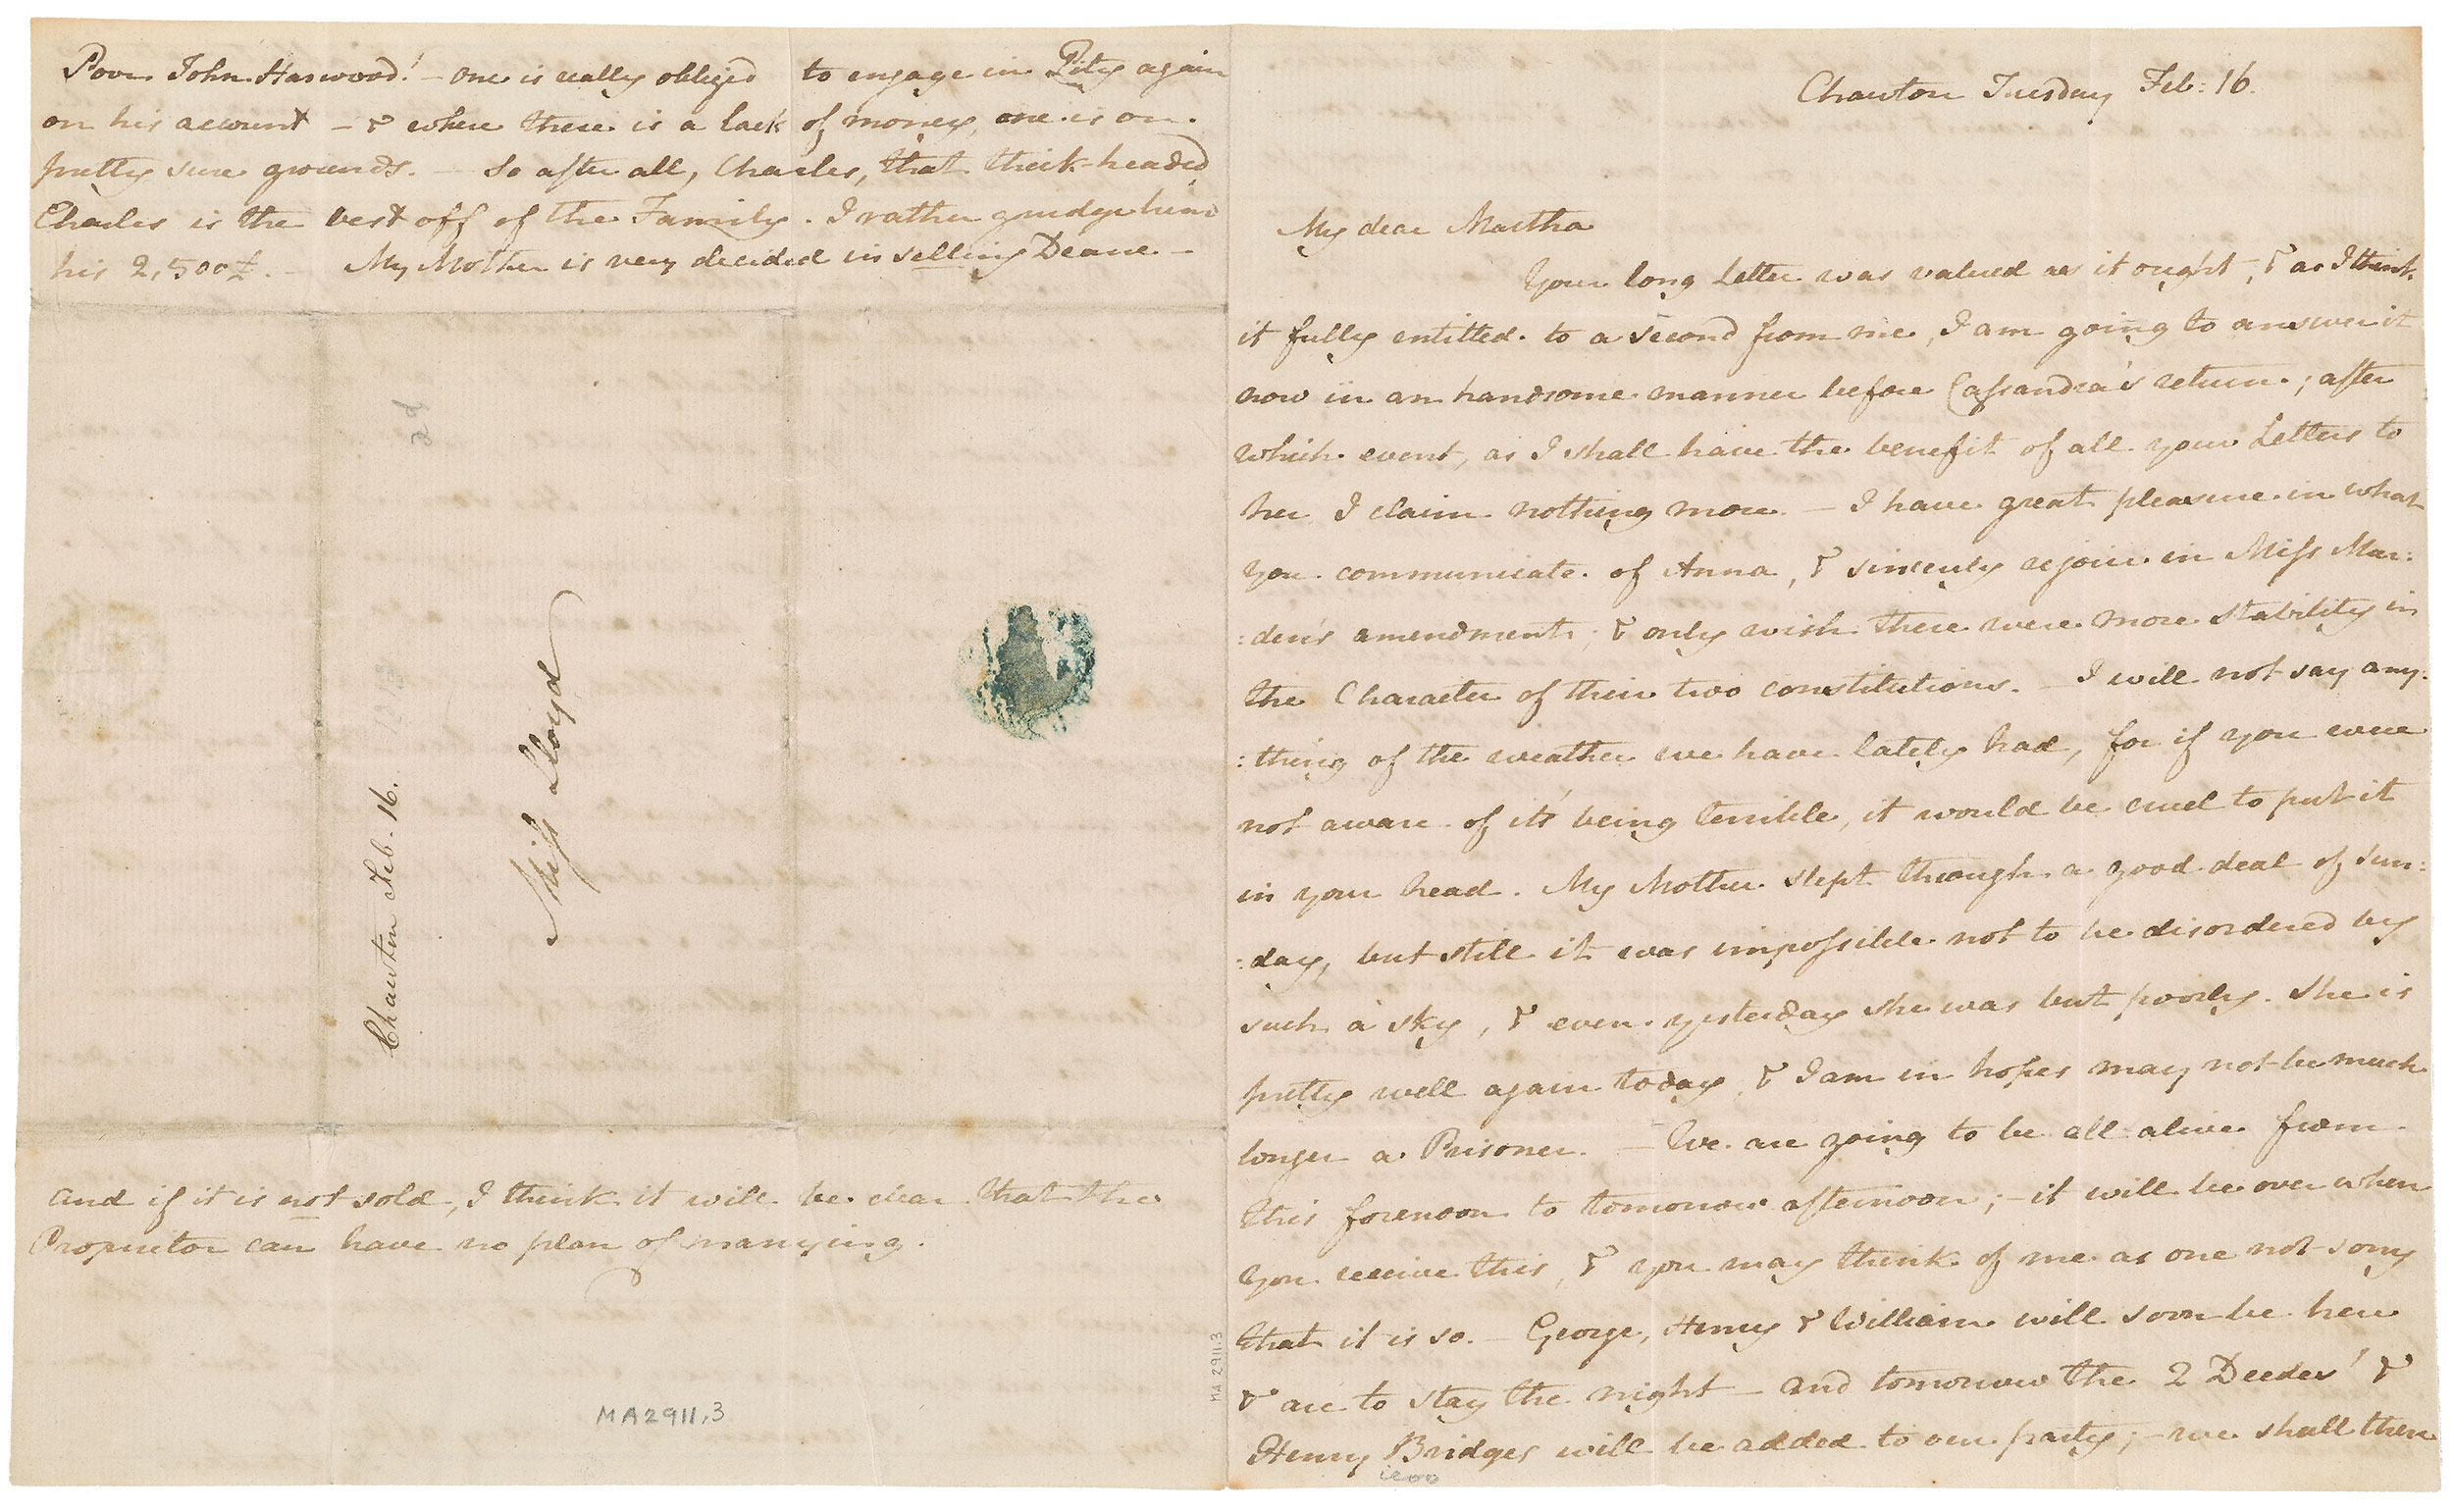 Poor John Harwood! – one is really obliged to engage in Pity again
on his account – & where there is a lack of money, one is on
pretty sure grounds. – So after all, Charles, that thick-headed
Charles is the best off of the Family. I rather grudge him
his 2,500£. – My Mother is very decided in selling Deane –
2d
Miss Lloyd
Chawton Feb. 16.
And if it is not sold, I think it will be clear that the
Proprietor can have no plan of marrying.
MA 2911.3
MA 2911.3
Chawton Tuesday Feb: 16.
My dear Martha
Your long Letter was valued as it ought, & as I think
it fully entitled to a second from me, I am going to answer it
now in an handsome manner before Cassandra's return; after
which event, as I shall have the benefit of all your Letters to
her I claim nothing more. – I have great pleasure in what
you communicate of Anna, & sincerely rejoice in Miss Mur:
:den's amendment; & only wish there were more stability in
the Character of their two constitutions. – I will not say any:
:thing of the weather we have lately had, for if you were
not aware of it's being terrible, it would be cruel to put it
in your head. My Mother slept through a good deal of Sun:
:day, but still it was impossible not to be disordered by
such a sky, & even yesterday she was but poorly. She is
pretty well again today, & I am in hopes may not be much
longer a Prisoner. – We are going to be all alive from
this forenoon to tomorrow afternoon; – it will be over when
you receive this, & you may think of me as one not sorry
that it is so. – George, Henry & William will soon be here
& are to stay the night – and tomorrow the 2 Deedes' &
Henry Bridges will be added to our party; – we shall then